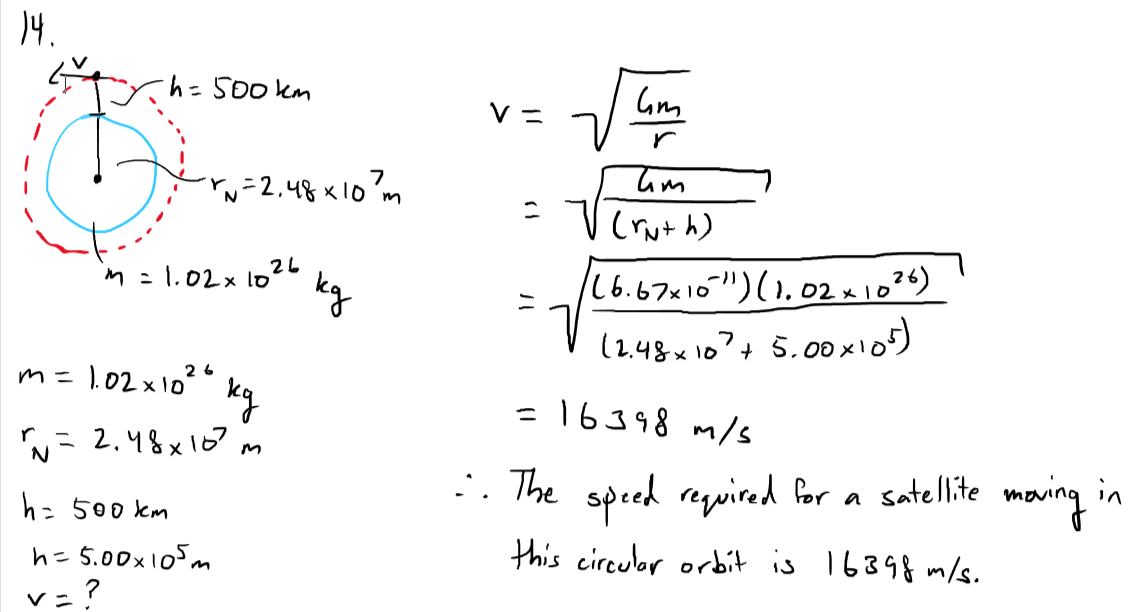 14.
v
h = 500 km
r_N = 2.48 × 10⁷ m
m = 1.02 × 10²⁶ kg
m = 1.02 × 10²⁶ kg
r_N = 2.48 × 10⁷ m
h = 500 km
h = 5.00 × 10⁵ m
v = ?
v = √(Gm / r)
= √(Gm / (r_N + h))
= √((6.67×10⁻¹¹)(1.02 × 10²⁶) / (2.48 × 10⁷ + 5.00 × 10⁵))
= 16398 m/s
∴ The speed required for a satellite moving in
this circular orbit is 16398 m/s.